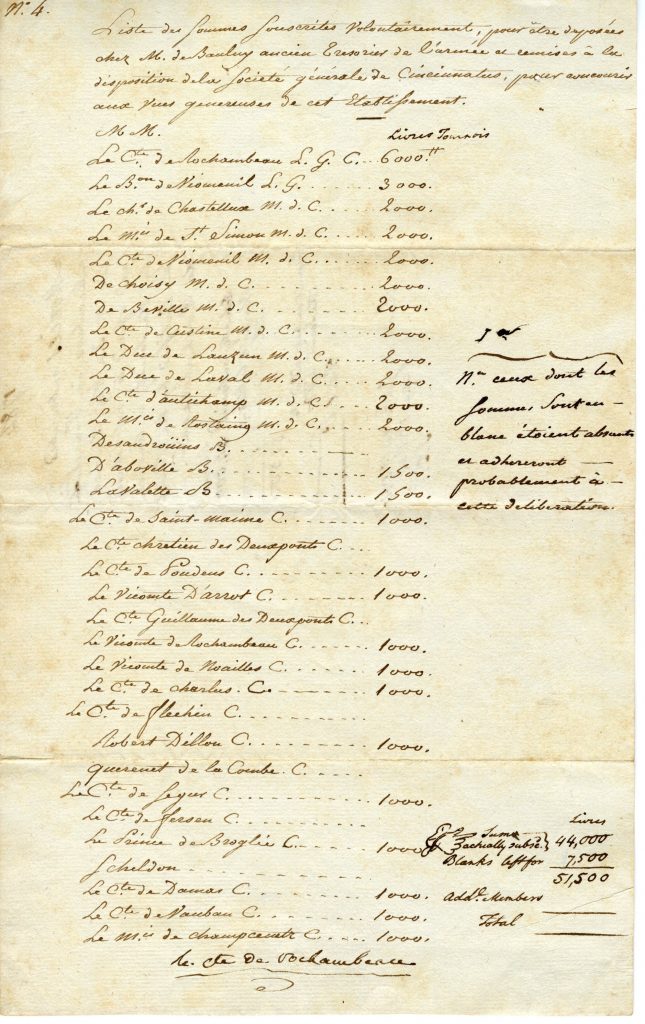 N.o 4.
Liste des Sommes Souscrites Volontairement, pour être deposées
chez M. de Baulny ancien Tresorier de l'armée et remises à la
disposition de la Societé générale de Cincinnatus, pour concourir
aux Vues genereuses de cet Etablissement.
M M. Livres Tournois
Le Cte. de Rochambeau L. G. C.. 6000.tt
Le Bon. de Viomenil L. G. ...... 3000.
Le chr. de Chastellux M. d. C. .... 2000.
Le Mis. de St. Simon M. d. C. .... 2000.
Le Cte. de Viomenil M. d. C. .... 2000.
De choisy M. d. C. ........ 2000.
De Beville M. d. C. ....... 2000.
Le Cte. de Custine M. d. C. .... 2000.
Le Duc de Lauzun M. d. C. .... 2000.
Le Duc de Laval M. d. C. .... 2000.
Le Cte. d'autichamp M. d. C. ... 2000.
Le Mis. de Rostaing M. d. C. ... 2000.
Desandroüins B. ........
D'aboville B. ........ 1500.
LaValette B ........ 1500.
Le Cte. de Saint-maime C. ..... 1000.
Le Cte. chretien des Deuxponts C. ...
Le Cte. de Poudens C. ........ 1000.
Le Vicomte D'arrot C. ....... 1000.
Le Cte. Guillaume des Deuxponts C. ..
Le Vicomte de Rochambeau C. .... 1000.
Le Vicomte de Noailles C. ..... 1000.
Le Cte. de charlus. C. ........ 1000.
Le Cte. de flechin C. ........
Robert Dillon C. ........ 1000.
querenet de la Combe. C. ....
Le Cte. de Segur C. ........ 1000.
Le Cte. de fersen C. ........
Le Prince de Broglie C. ...... 1000.
Scheldon ........
Le Cte. de Damas C. ........ 1000.
Le Cte. de Vauban C. ....... 1000.
Le Mis. de champcenetz C. .... 1000.
le cte de rochambeau
Na. ceux dont les
Sommes Sont en
blanc étoient absents
et adhereront
probablement à
cette deliberation.
Livres
Sums
actually subsc. } 44,000
Blanks left for 7,500
51,500
Addl. Members
Total